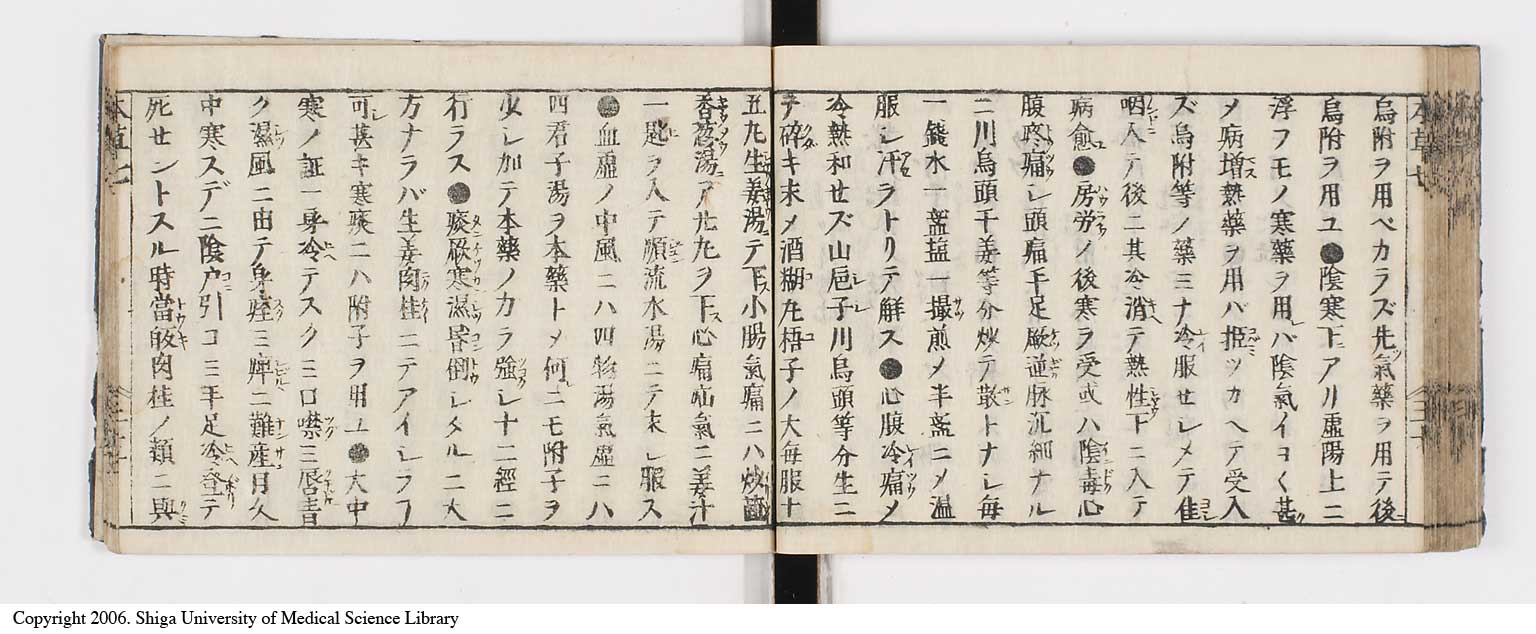 烏附ヲ用ベカラズ先氣藥ヲ用テ後ニ
烏附ヲ用ユ●陰寒下アリ虛陽上ニ
浮フモノ寒藥ヲ用レバ陰氣イヨく甚ク
メ病増ス熱藥ヲ用バ拒ツカヘテ受入
ズ烏附等ノ藥ミナ冷服セシメテ佳
咽入テ後ニ其冷消テ熱性下ニ入テ
病愈●房労ノ後寒ヲ受或ハ陰毒心
腹疼痛シ頭痛手足厥逆脉沉細ナル
ニ川烏頭干姜等分炒テ散トナシ毎
一錢水一盞塩一撮煎メ半盞ニメ温
服シ汗ヲトリテ解ス●心腹冷痛メ
冷熱和セズ山梔子川烏頭等分生ニ
テ碎キ末メ酒糊丸梧子ノ大毎服十
五丸生姜湯テ下ス小腸氣痛ニハ炒茴
香葱湯ニア九丸ヲ下ス心痛疝氣ニ姜汁
一匙ヲ入テ順流水湯ニテ末シ服ス
●血虛ノ中風ニハ四物湯氣虛ニハ
四君子湯ヲ本藥トメ何レニモ附子ヲ
少シ加テ本藥ノカラ強シ十二經ニ
行ラス●痰厥寒濕昏倒シタルニ大
方ナラバ生姜肉桂ニテアイシラフ
可レ甚キ寒痰ニハ附子ヲ用ユ●大中
寒ノ証一身冷テスクミ口噤ミ唇青
ク濕風ニ由テ身痙ミ痺ニ難産月久
中寒スデニ陰户引コミ手足冷登テ
死セントスル時當皈肉桂ノ類ニ與
本草七
Copyright 2006. Shiga University of Medical Science Library